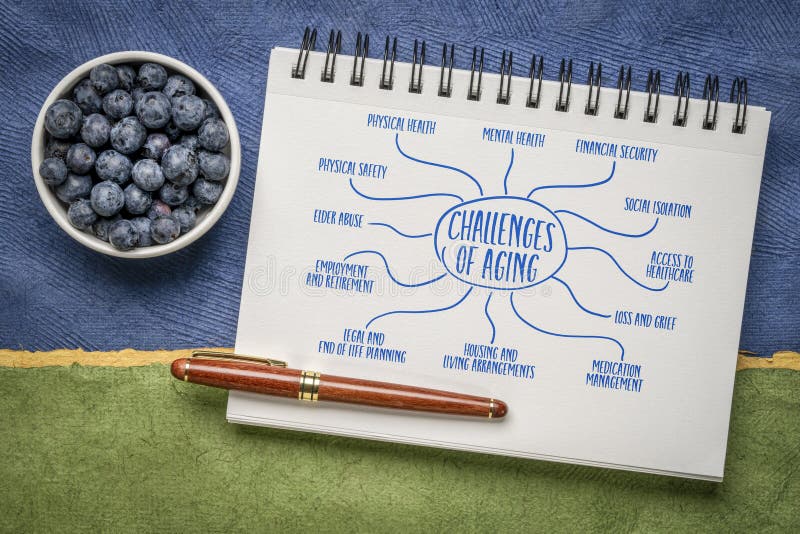 PHYSICAL HEALTH
MENTAL HEALTH
FINANCIAL SECURITY
PHYSICAL SAFETY
SOCIAL ISOLATION
ELDER ABUSE
CHALLENGES
OF AGING
ACCESS TO
HEALTHCARE
EMPLOYMENT
AND RETIREMENT
LOSS AND GRIEF
LEGAL AND
END OF LIFE PLANNING
HOUSING AND
LIVING ARRANGEMENTS
MEDICATION
MANAGEMENT
dreamstime